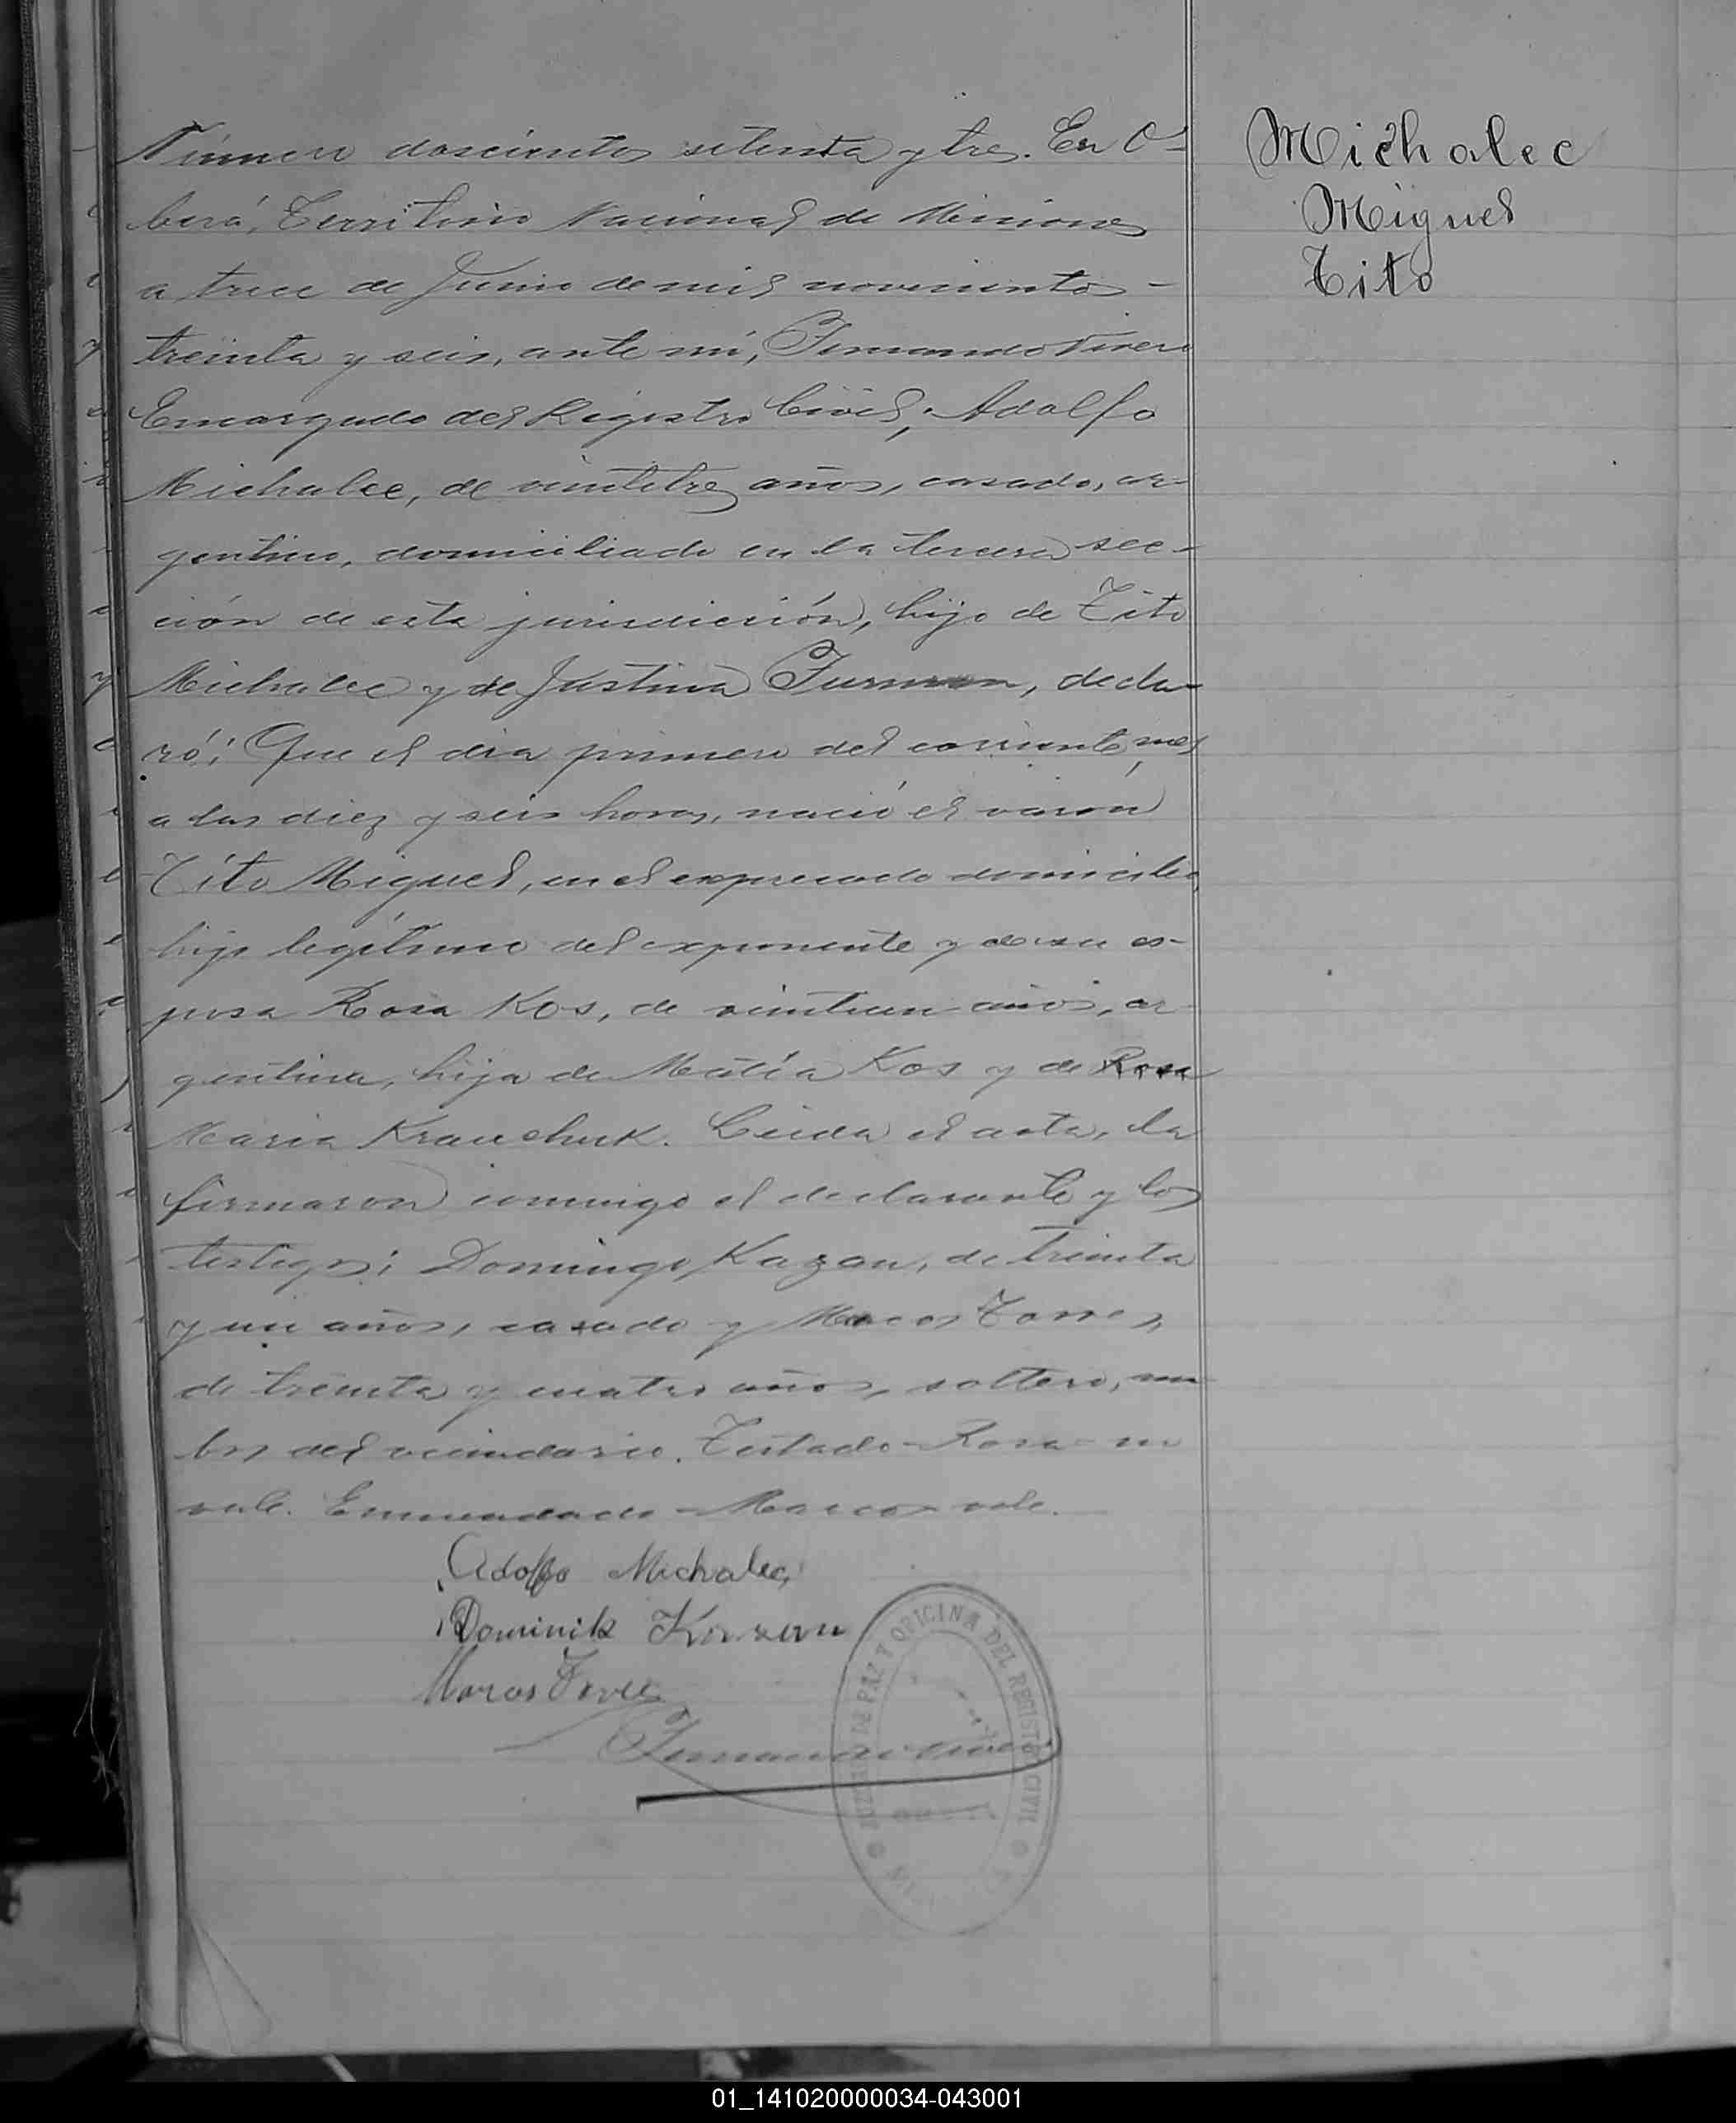 Número doscientos setenta y tres. En O-
berá, Territorio Nacional de Misiones
a trece de Junio de mil novecientos -
treinta y seis, ante mí, Fernando Vivero
Encargado del Registro Civil; Adolfo
Michalec, de veintitres años, casado, ar-
gentino, domiciliado en la tercera sec-
ción de esta jurisdicción, hijo de Tito
Michalec y de Justina Furman, decla-
ró: Que el dia primero del corriente mes
a las diez y seis horas, nació el varón
Tito Miguel, en el expresado domicilio,
hijo legítimo del exponente y de su es-
posa Rosa Kos, de veintiun años, ar-
gentina, hija de Matía Kos y de Rosa
Maria Krauchuk. Leida el acta, la
firmaron conmigo el declarante y los
testigos: Domingo Kazan, de treinta
y un años, casado y Marcos Torres,
de treinta y cuatro años, soltero, am
bos del vecindario. Testado - Rosa - no
vale. Enmendado - Marcos vale.
Adolfo Michalec
Dominik Kazan
Marcos Torres
Fernando Vivero
JUZGADO DE PAZ Y OFICINA DEL REGISTRO CIVIL
Michalec
Miguel
Tito
01_141020000034-043001